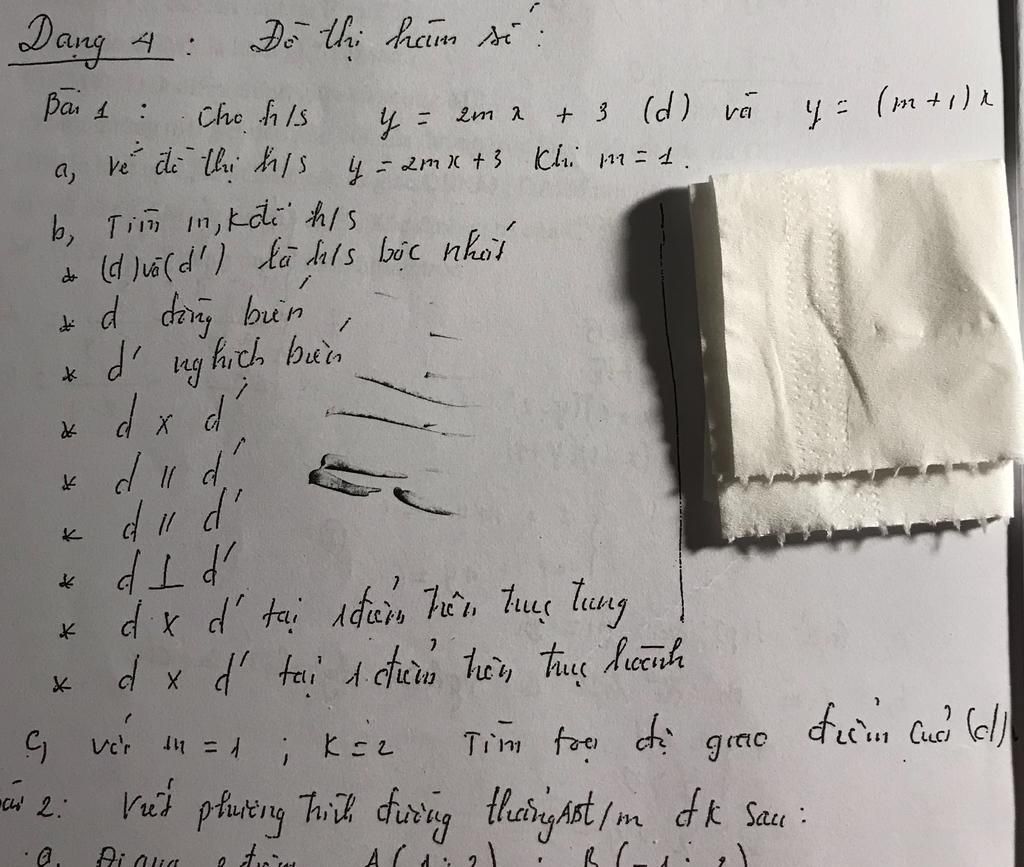 Dạng 4 : Đồ thị hàm số :
Bài 1 : Cho h/s y = 2mx + 3 (d) và y = (m+1)x
a, vẽ đồ thị h/s y = 2mx+3 khi m=1.
b, Tìm m,k để h/s
* (d) và (d') là h/s bậc nhất
* d đồng biến
* d' nghịch biến
* d x d'
* d // d'
* d // d'
* d ⊥ d'
* d x d' tại 1 điểm trên trục tung
* d x d' tại 1 điểm trên trục hoành
C, với m = 1 ; k = 2 Tìm toạ độ giao điểm của (d)
2: Viết phương trình đường thẳng AB t/m đk sau :
a. Đi qua 2 điểm A(1;2) ; B(-1;2)